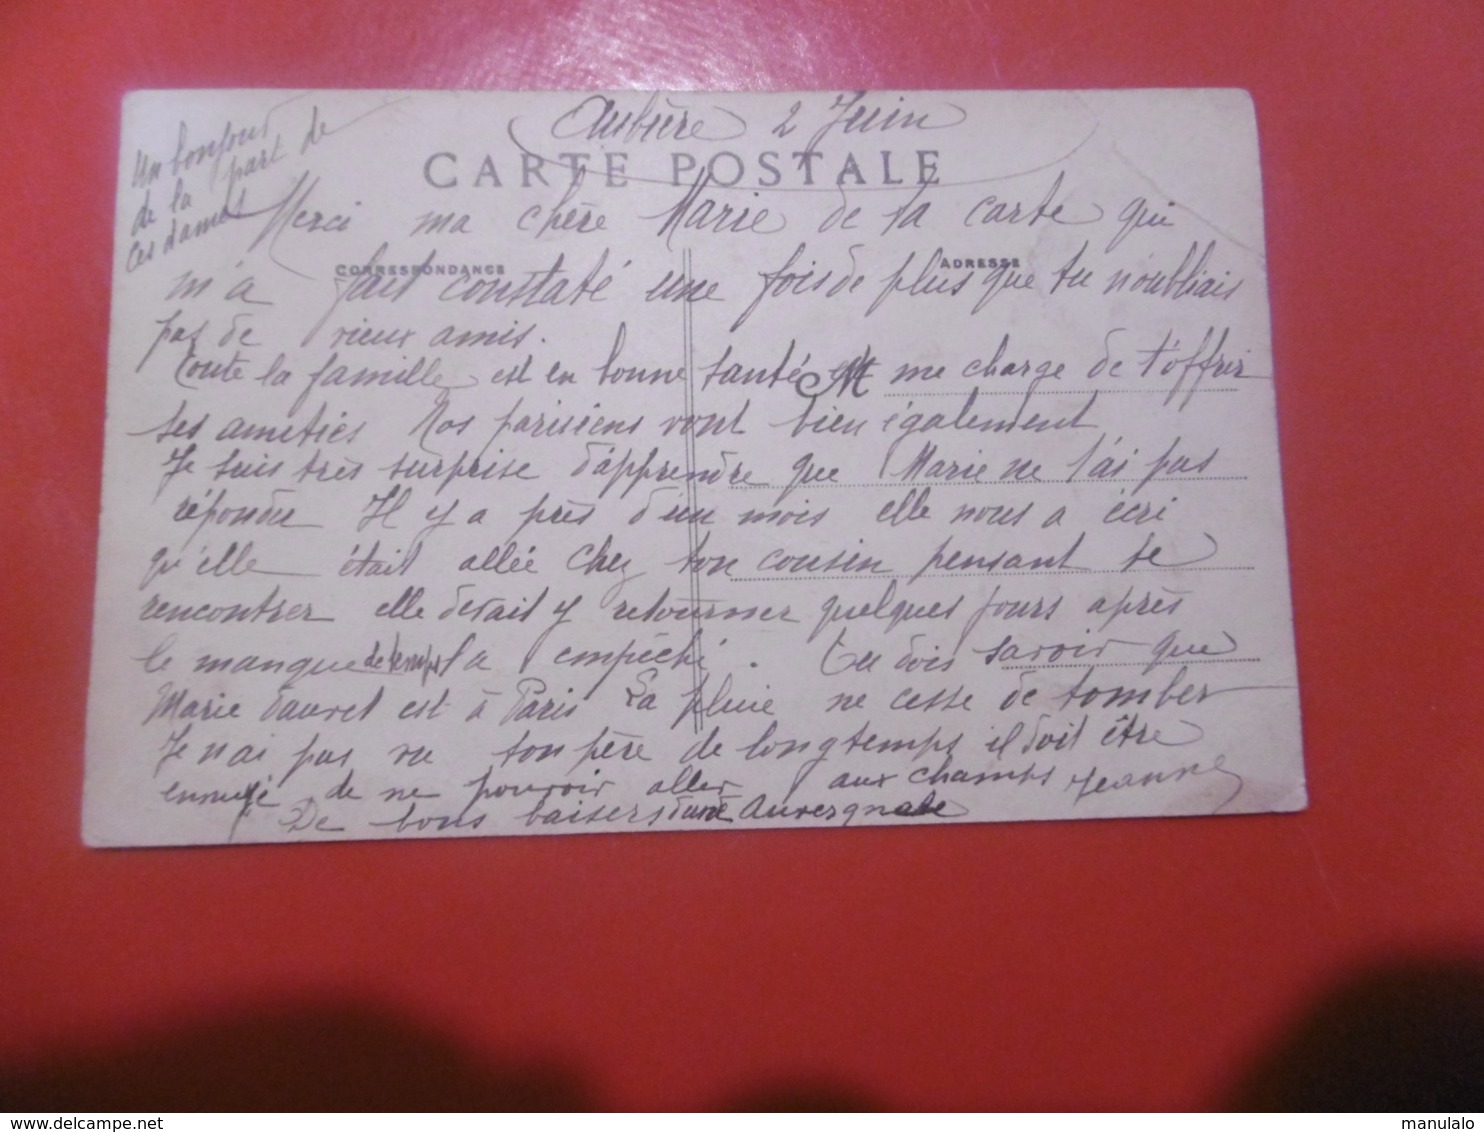 Aubière 2 Juin
CARTE POSTALE
Un bonjour
de la part de
ces dames
Merci ma chère Marie de ta carte qui
CORRESPONDANCE
ADRESSE
m'a fait constaté une fois de plus que tu n'oubliais
pas de vieux amis.
Toute la famille est en bonne santé et me charge de t'offrir
ses amitiés Nos parisiens vont bien également
Je suis très surprise d'apprendre que Marie ne t'ai pas
répondu Il y a près d'un mois elle nous a écri
qu'elle était allée chez ton cousin pensant te
rencontrer elle devait y retourner quelques jours après
le manque de temps la empêché. Tu dois savoir que
Marie Dauvet est à Paris La pluie ne cesse de tomber
Je n'ai pas vu ton père de longtemps il doit être
ennuyé de ne pouvoir aller aux champs Jeanne
De bons baisers d'une Auvergnate
delcampe.net
manulalo